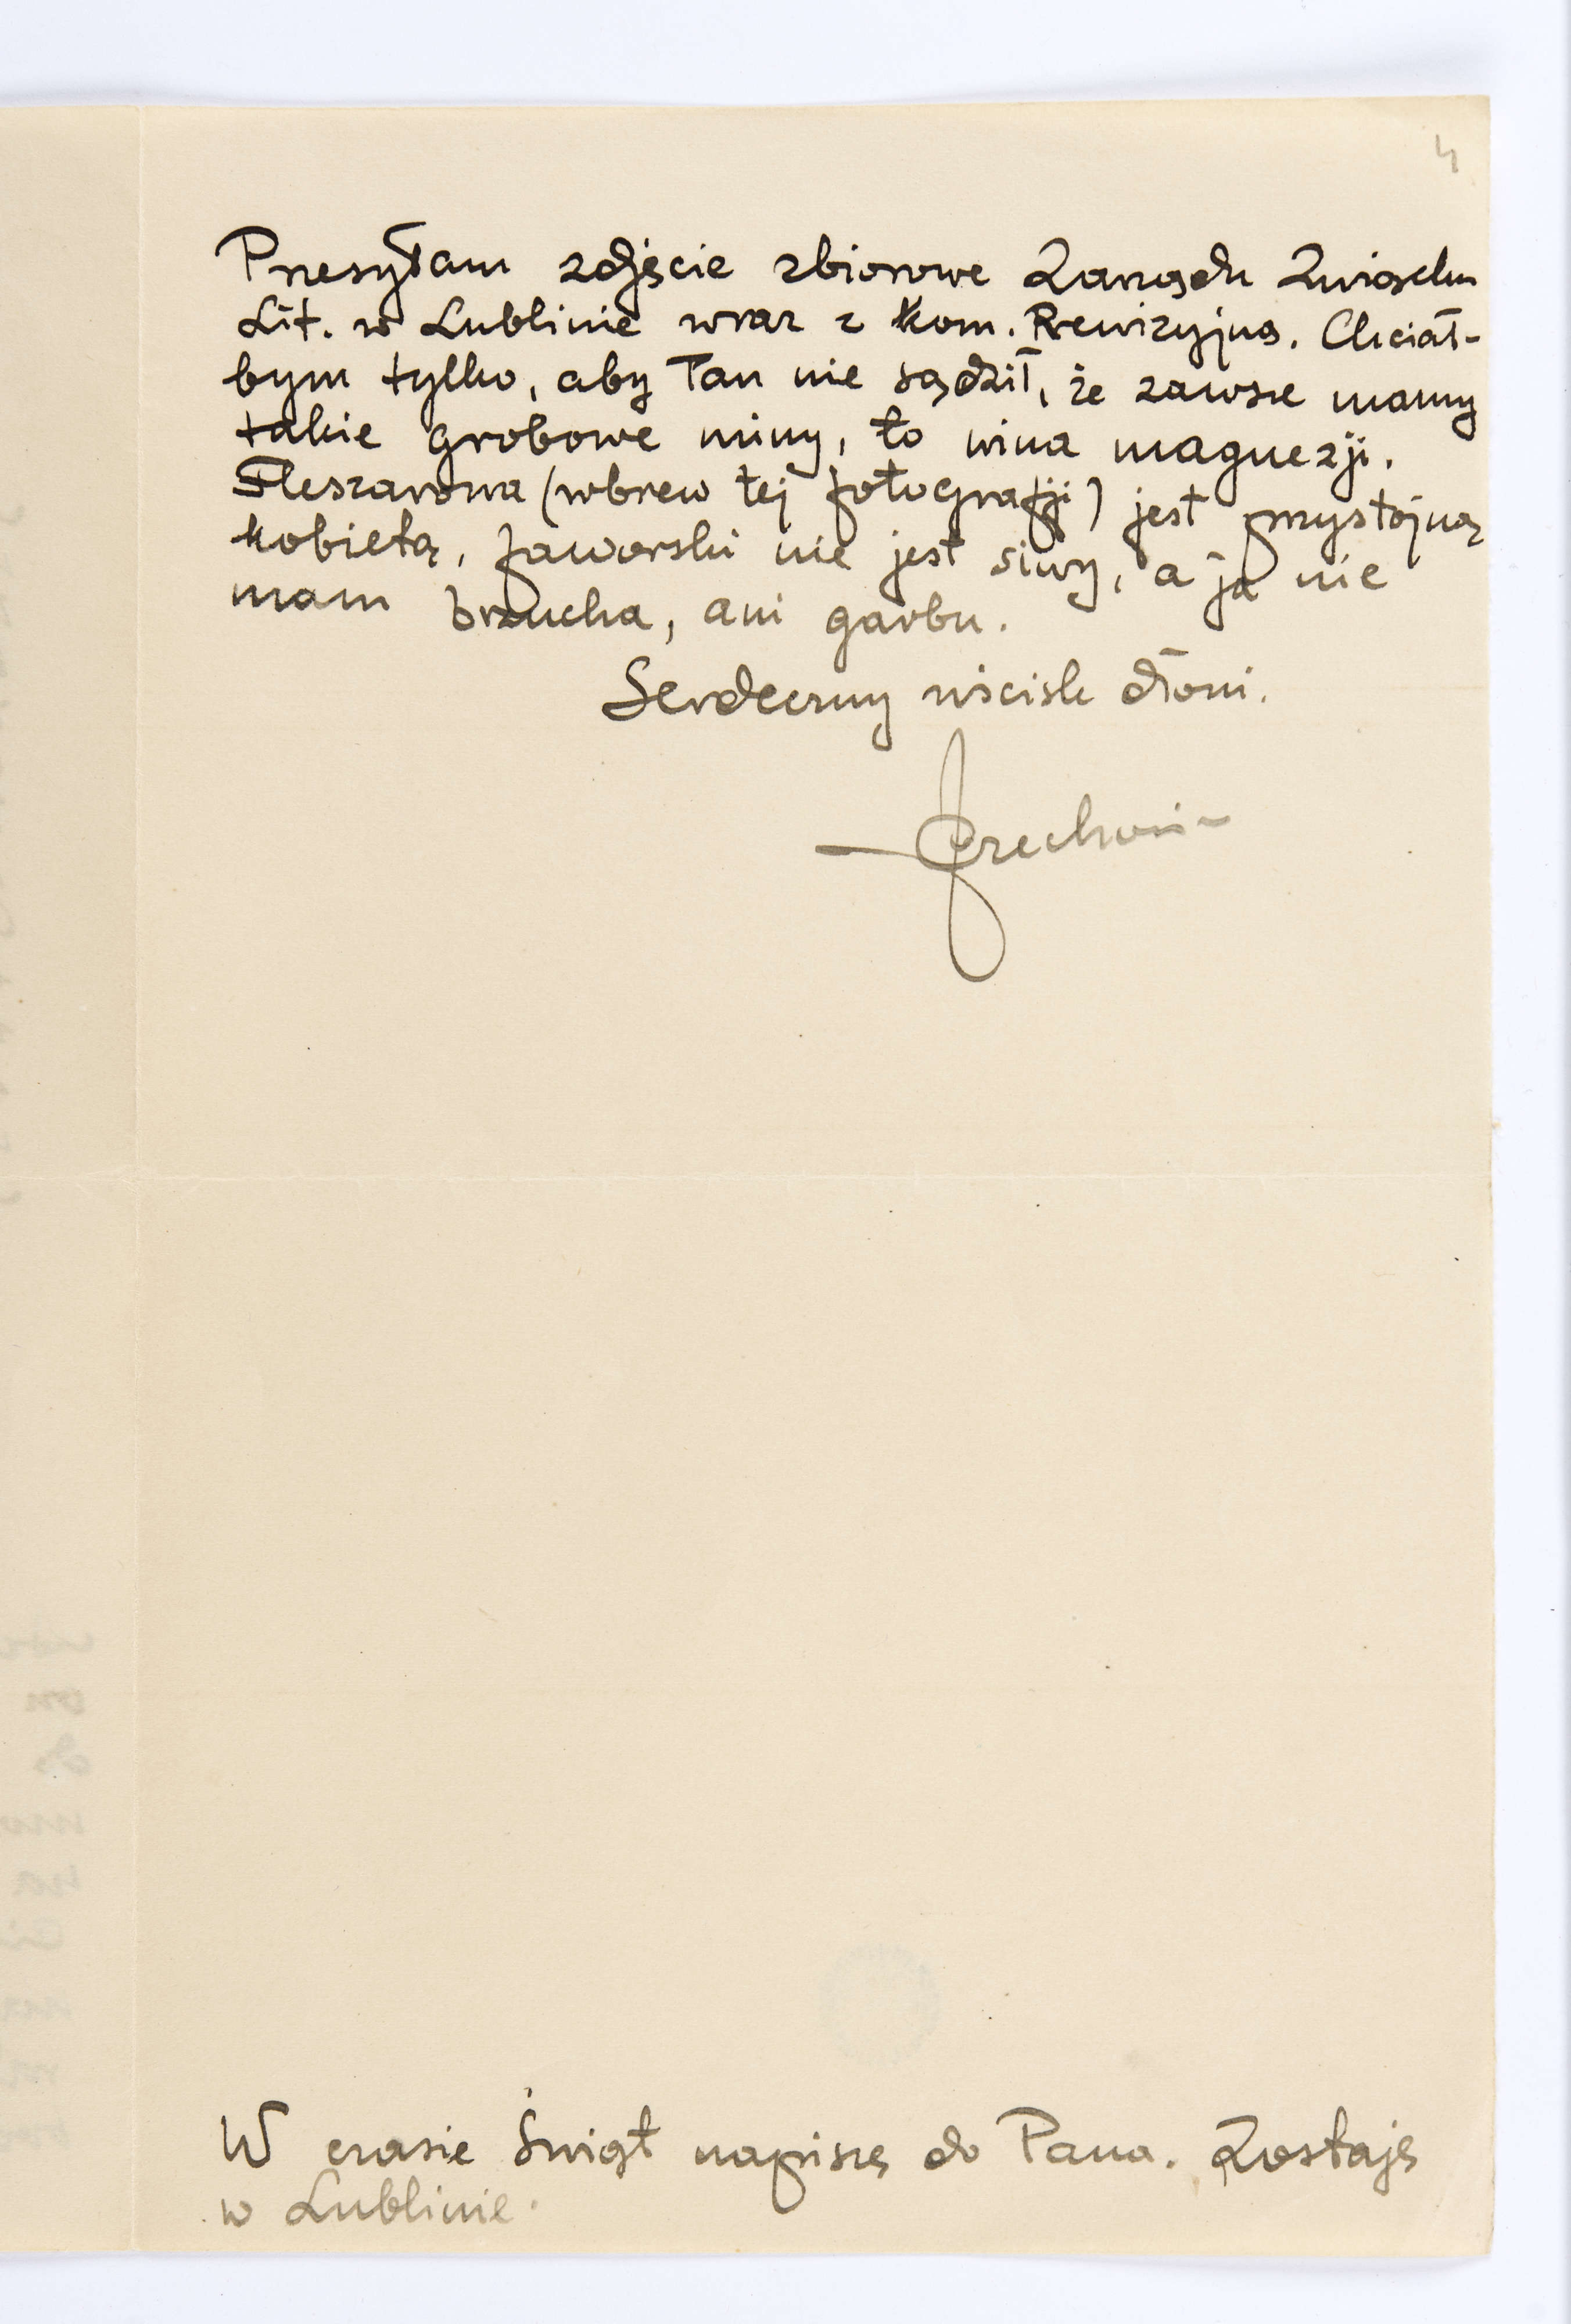 4
Przesyłam zdjęcie zbiorowe Zarządu Związku
Lit. w Lublinie wraz z Kom. Rewizyjną. Chciał-
bym tylko, aby Pan nie sądził, że zawsze mamy
takie grobowe miny, to wina magnezji.
Fleszarowa (wbrew tej fotografji) jest przystojną
kobietą, Jaworski nie jest siwy, a ja nie
mam brzucha, ani garbu.
Serdeczny uścisk dłoni.
JCzechowicz
W czasie Świąt napiszę do Pana. Zostaję
w Lublinie.